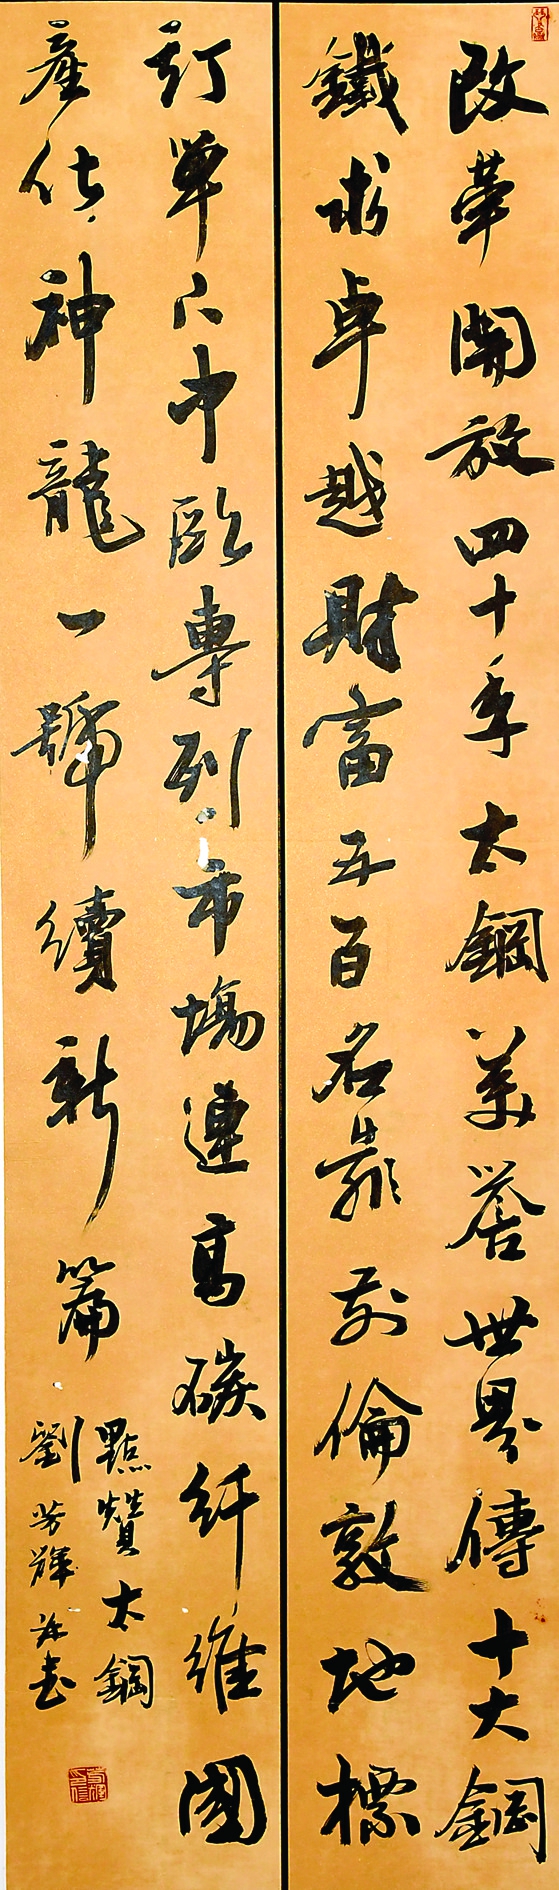 改革開放四十年太鋼美譽世界傳十大鋼
鐵求卓越財富五百名靠前倫敦地標
訂單下中歐專列市場連高碳纤維國
產化神龍一號續新篇
點贊太鋼
劉芳輝詩書